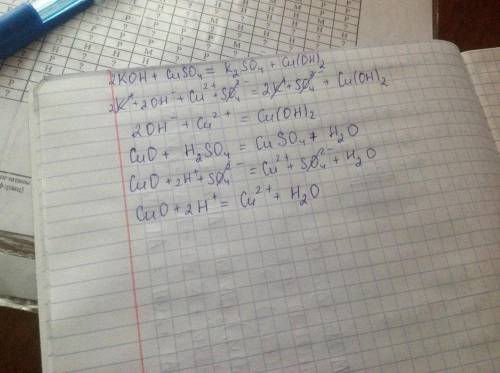 2KOH + CuSO₄ = K₂SO₄ + Cu(OH)₂
2K⁺ + 2OH⁻ + Cu²⁺ + SO₄²⁻ = 2K⁺ + SO₄²⁻ + Cu(OH)₂
2OH⁻ + Cu²⁺ = Cu(OH)₂
CuO + H₂SO₄ = CuSO₄ + H₂O
CuO + 2H⁺ + SO₄²⁻ = Cu²⁺ + SO₄²⁻ + H₂O
CuO + 2H⁺ = Cu²⁺ + H₂O